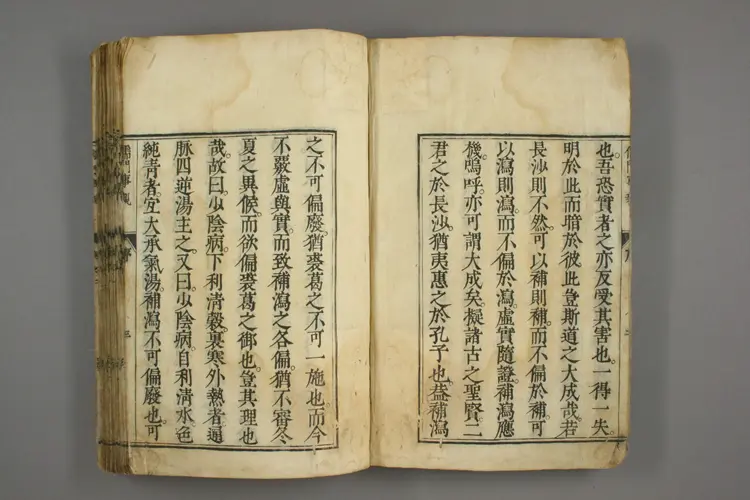 也。吾恐實者之亦反受其害也。一得一失。
明於此而暗於彼。此豈斯道之大成哉。若
長沙則不然。可以補則補。而不偏於補。可
以瀉則瀉。而不偏於瀉。虛實隨證。補瀉應
機。嗚呼。亦可謂大成矣。擬諸古之聖賢。二
君之於長沙。猶夷惠之於孔子也。蓋補瀉
之不可偏廢。猶裘葛之不可一施也。而今
不覈虛與實。而致補瀉之各偏。猶不審冬
夏之異候。而欲偏裘葛之御也。豈其理也
哉。故曰。少陰病。下利清穀。裏寒外熱者。通
脉四逆湯主之。又曰。少陰病。自利清水。色
純青者。宜大承氣湯。補瀉不可偏廢也。可
儒門事親
序